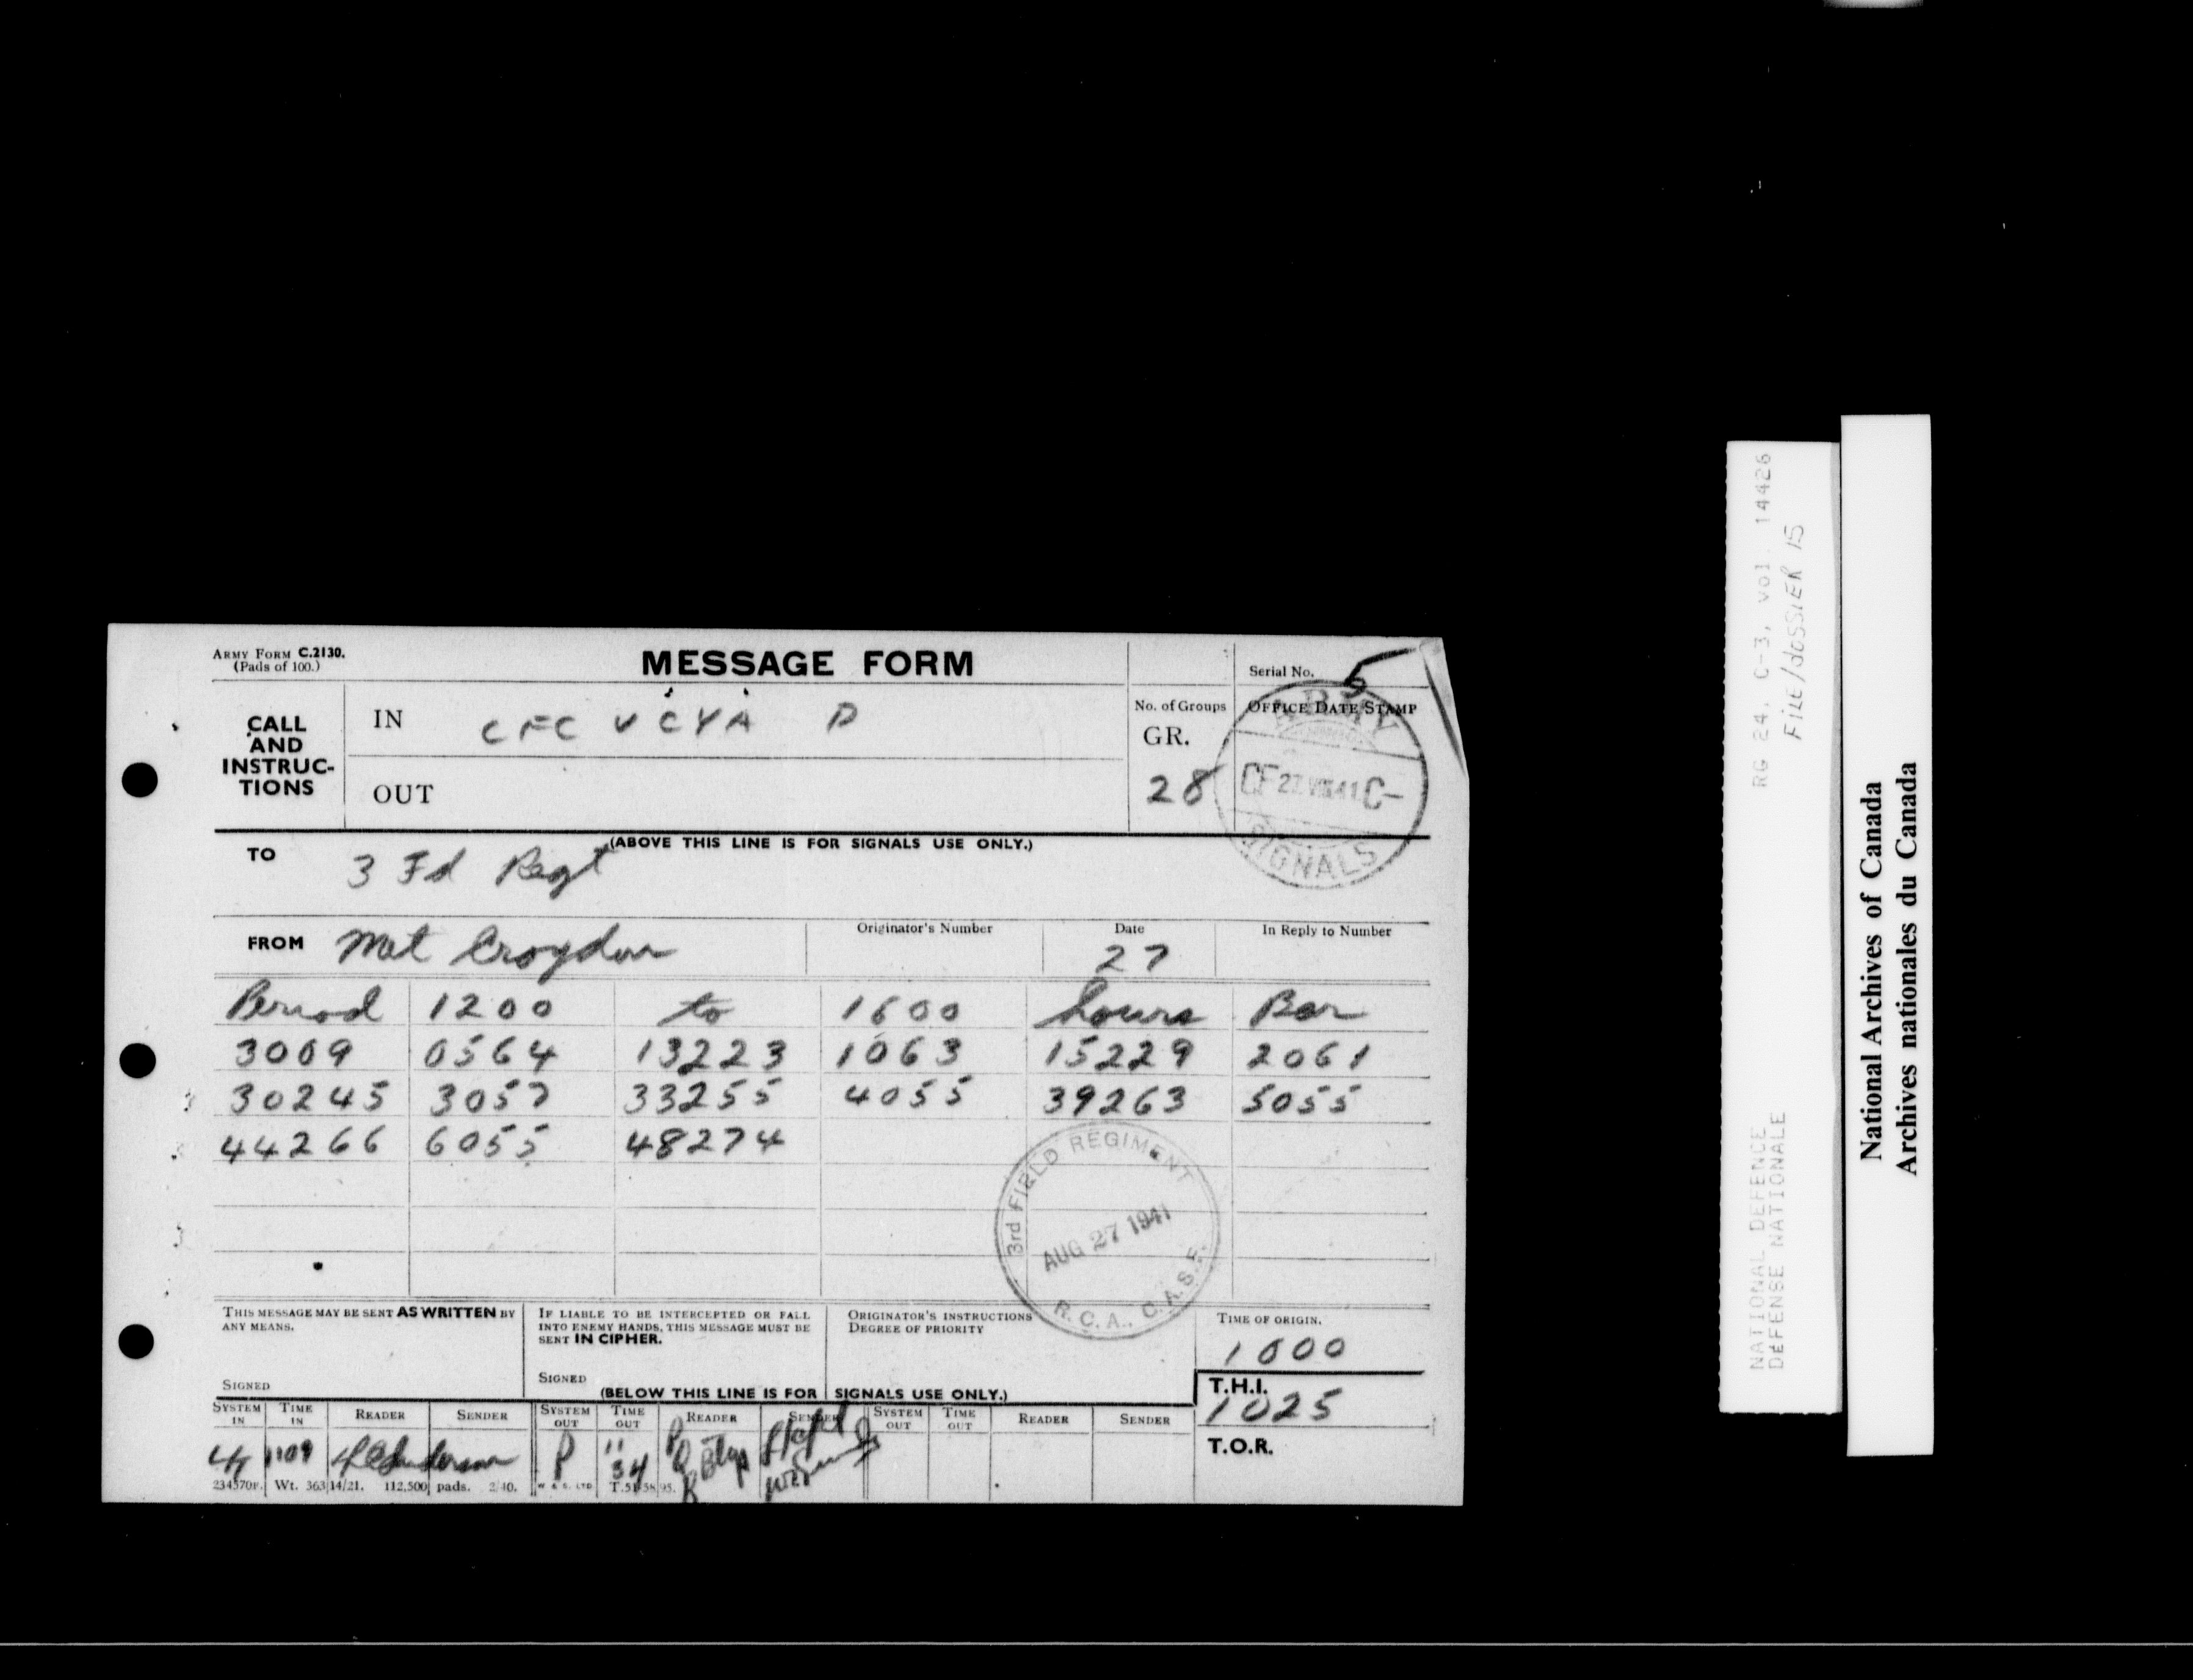 ARMY FORM C.2130.
(Pads of 100.)
MESSAGE FORM
Serial No. 5
CALL AND INSTRUC-TIONS
IN CFC V CYA D
OUT
No. of Groups
GR.
28
OFFICE DATE STAMP
ARMY
CF 27 VIII 41 C-
SIGNALS
(ABOVE THIS LINE IS FOR SIGNALS USE ONLY.)
TO 3 Fd Regt
FROM Met Croydon
Originator's Number
Date
27
In Reply to Number
Period 1200 to 1600 hours Bar
3009 0564 13223 1063 15229 2061
30245 3057 33255 4055 39263 5055
44266 6055 48274
3rd FIELD REGIMENT
AUG 27 1941
R.C.A., C.A.S.F.
THIS MESSAGE MAY BE SENT AS WRITTEN BY
ANY MEANS.
SIGNED
IF LIABLE TO BE INTERCEPTED OR FALL
INTO ENEMY HANDS, THIS MESSAGE MUST BE
SENT IN CIPHER.
SIGNED
ORIGINATOR'S INSTRUCTIONS
DEGREE OF PRIORITY
TIME OF ORIGIN.
1000
T.H.I.
1025
T.O.R.
(BELOW THIS LINE IS FOR SIGNALS USE ONLY.)
SYSTEM IN TIME IN READER SENDER SYSTEM OUT TIME OUT READER SENDER SYSTEM OUT TIME OUT READER SENDER
1109 P 11 34
234570F. Wt. 363 14/21. 112,500 pads. 2/40. W & S. LTD
RG 24, C-3, vol. 14426
FILE/dossier 15
NATIONAL DEFENCE
DEFENSE NATIONALE
National Archives of Canada
Archives nationales du Canada